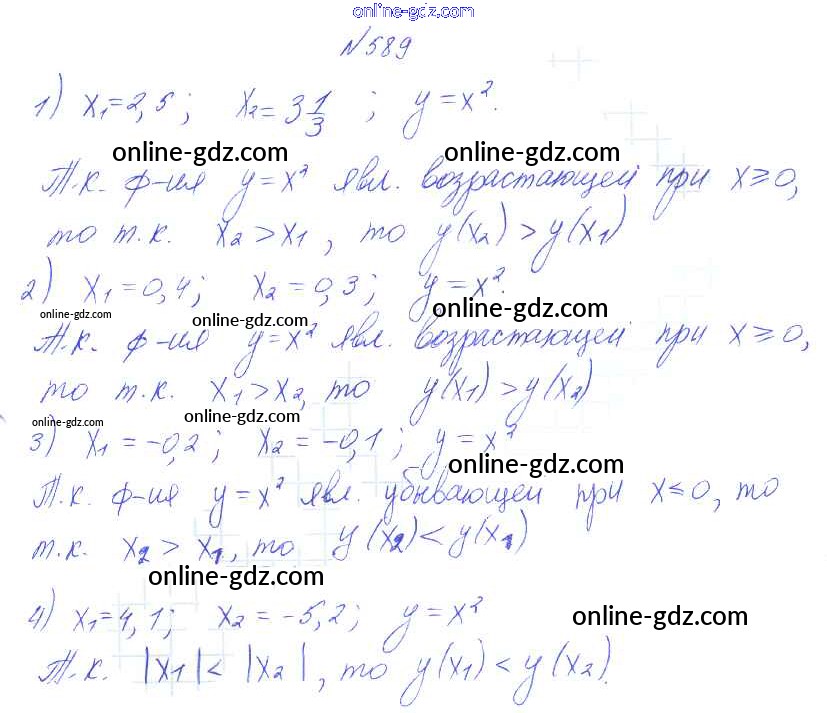 online-gdz.com
№589
1) x₁=2,5; x₂=3 1/3; y=x².
online-gdz.com online-gdz.com
Т.к. ф-ия y=x² явл. возрастающей при x≥0,
то т.к. x₂>x₁, то y(x₂)>y(x₁)
2) x₁=0,4; x₂=0,3; y=x².
online-gdz.com online-gdz.com online-gdz.com
Т.к. ф-ия y=x² явл. возрастающей при x≥0,
то т.к. x₁>x₂, то y(x₁)>y(x₂)
online-gdz.com online-gdz.com
3) x₁=-0,2; x₂=-0,1; y=x²
online-gdz.com
Т.к. ф-ия y=x² явл. убывающей при x≤0, то
т.к. x₂>x₁, то y(x₂)<y(x₁)
online-gdz.com
4) x₁=4,1; x₂=-5,2; y=x²
online-gdz.com
Т.к. |x₁|<|x₂|, то y(x₁)<y(x₂).